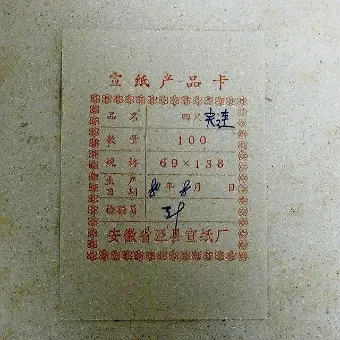 宣纸产品卡
品名 四尺夹连
数量 100
规格 69×138
生产日期 80年8月 日
检验员
安徽省泾县宣纸厂